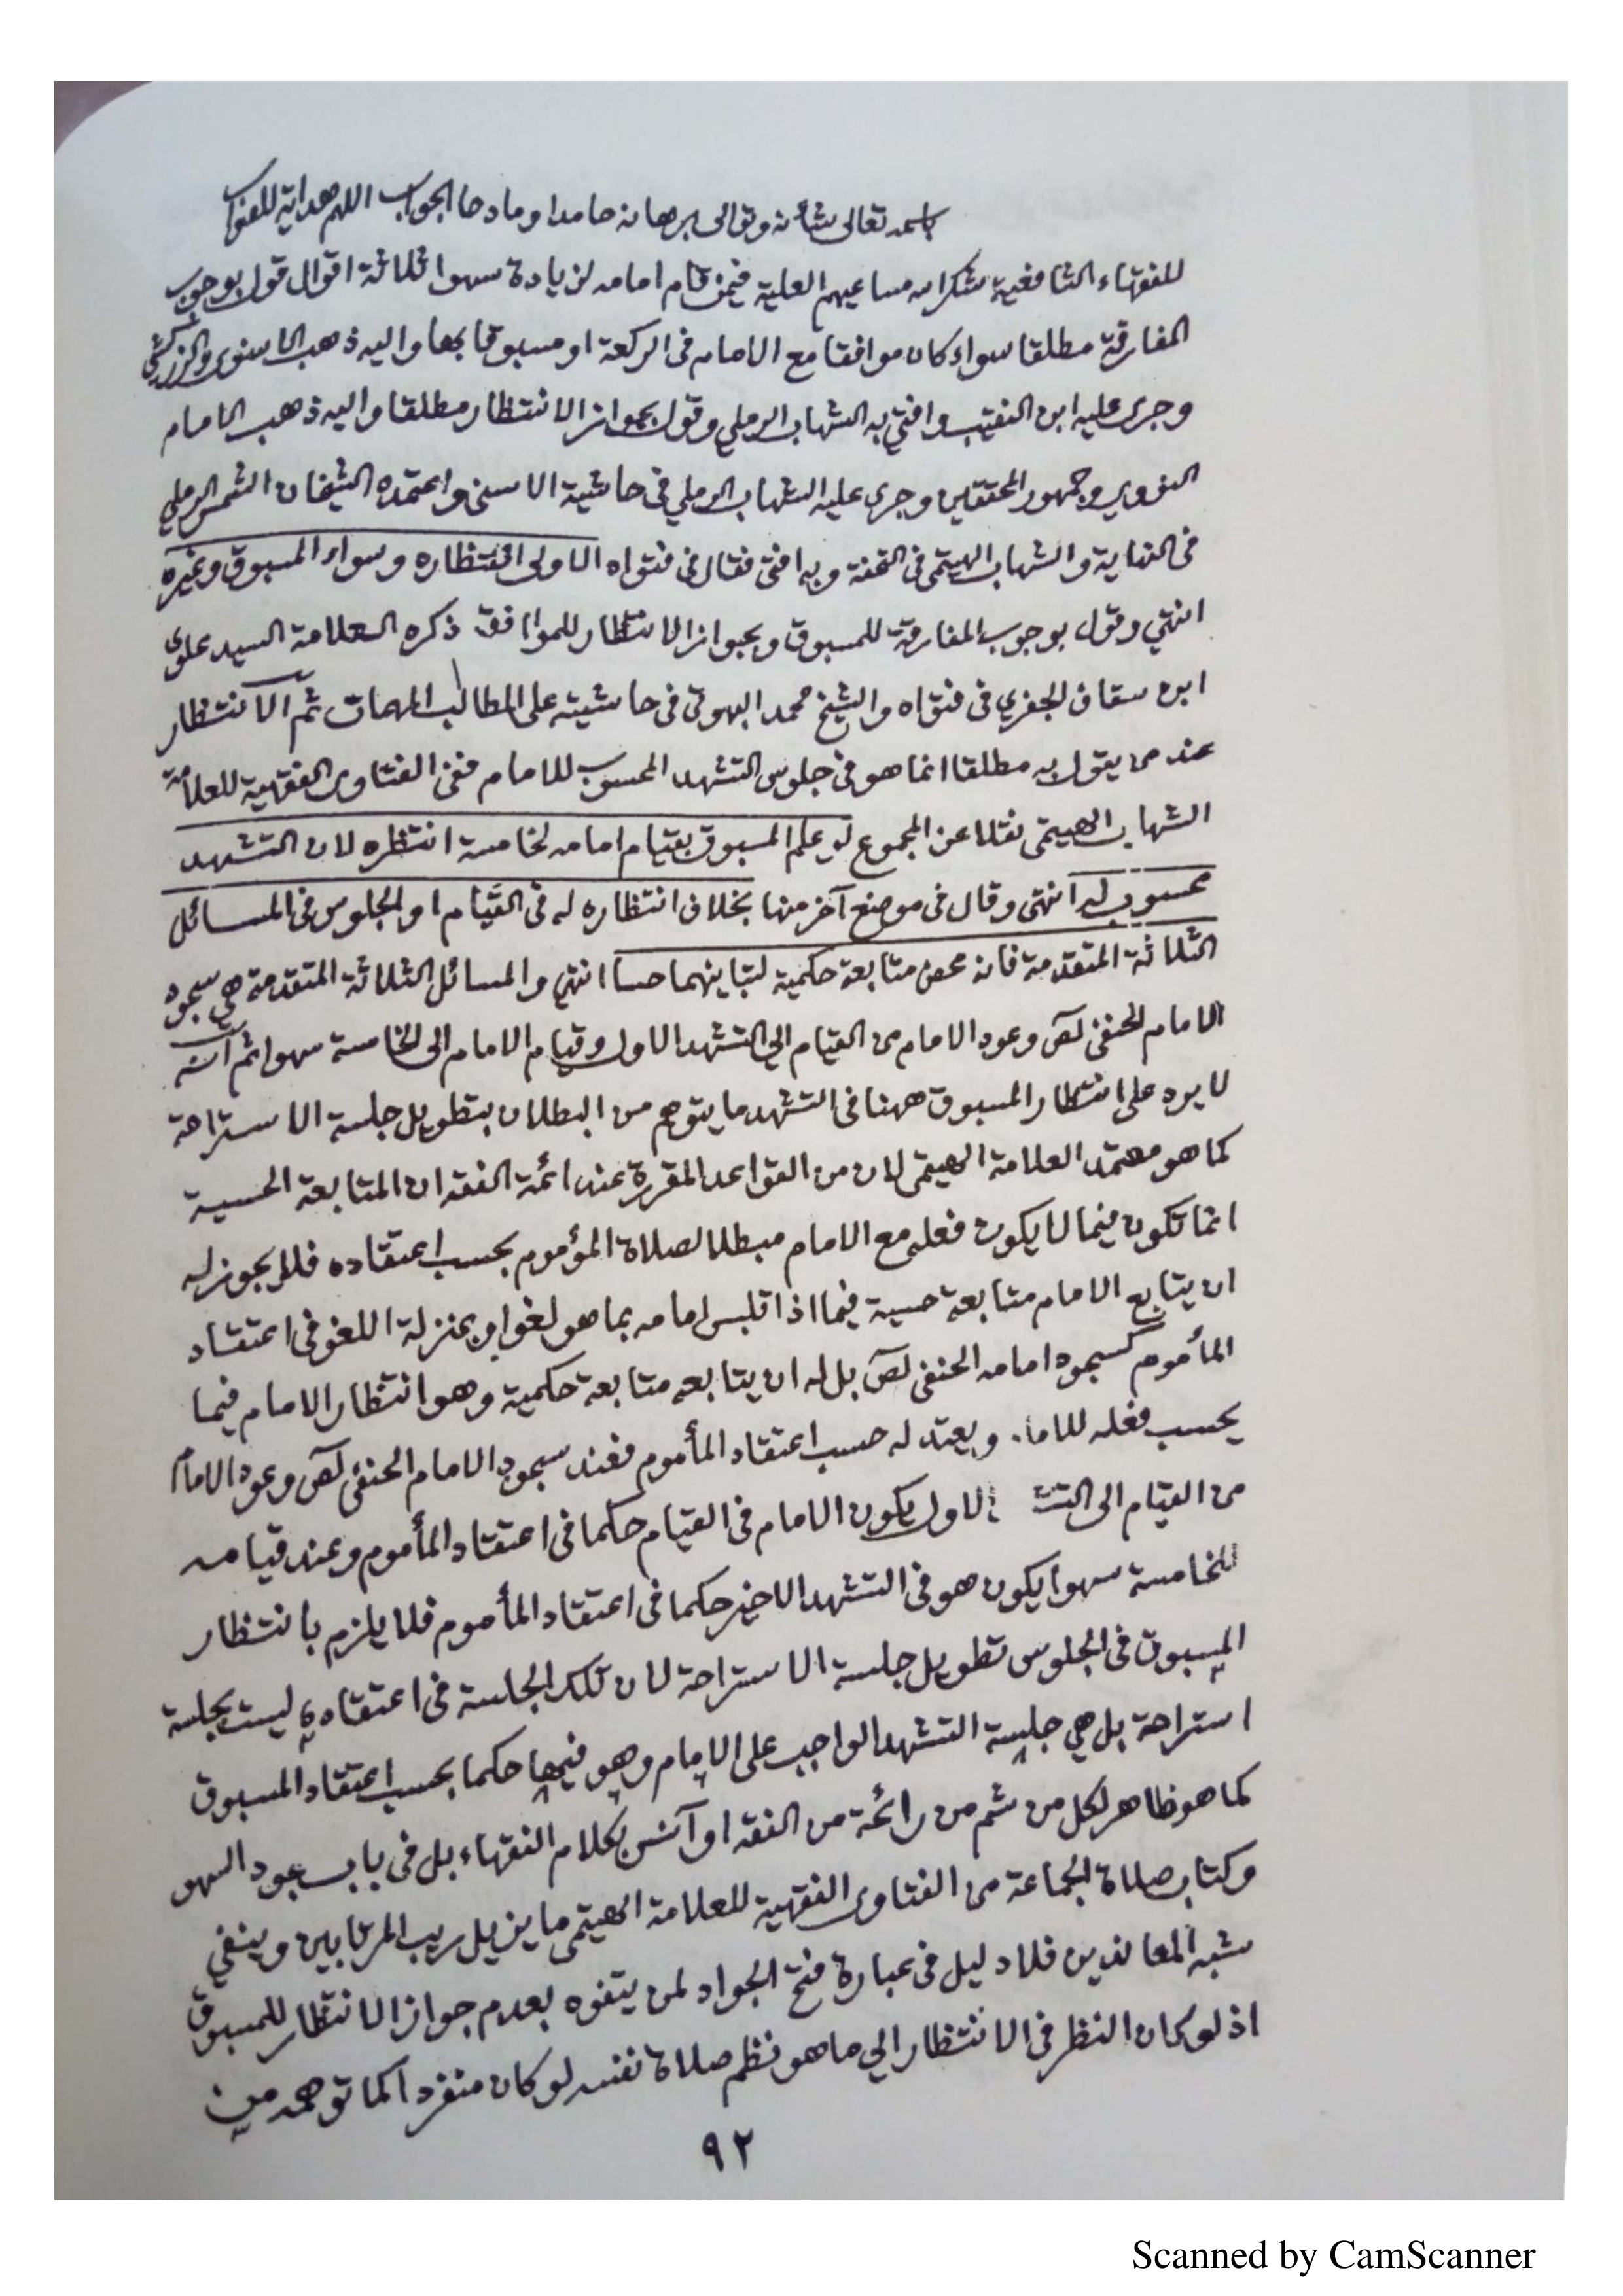 باسمه تعالى شأنه وتوالى برهانه حامدا ومادحا الجواب اللهم هداية للصواب
للفقهاء الشافعية شكر الله مساعيهم العلية فيمن قام امامه لزيادة سهوا ثلاثة اقوال قول بوجوب
المفارقة مطلقا سواء كان موافقا مع الامام فى الركعة او مسبوقا بها واليه ذهب الاسنوى والزركشى
وجرى عليه ابن النقيب وافتى به الشهاب الرملي وقول بجواز الانتظار مطلقا واليه ذهب الامام
النووي وجمهور المحققين وجرى عليه الشهاب الرملي فى حاشية الاسنى واعتمده الشيخان الشمس الرملي
فى النهاية والشهاب الهيتمى فى التحفة وبه افتى فقال فى فتواه الاولى انتظاره وسواء المسبوق وغيره
انتهي وقول بوجوب المفارقة للمسبوق وبجواز الانتظار للموافق ذكره العلامة السيد علوى
ابن سقاف الجفري فى فتواه والشيخ محمد البهوتى فى حاشيته على المطالب المهمات ثم الانتظار
عند من يقول به مطلقا انما هو فى جلوس التشهد المحسوب للامام ففى الفتاوى الفقهية للعلامة
الشهاب الهيتمى نقلا عن المجموع لو علم المسبوق بقيام امامه لخامسة انتظره لان التشهد
محسوب له انتهى وقال فى موضع آخر منها بخلاف انتظاره له فى القيام او الجلوس فى المسائل
الثلاثة المتقدمة فانه محض متابعة حكمية لتباينهما حسا انتهى والمسائل الثلاثة المتقدمة هى سجود
الامام الحنفى لص وعود الامام من القيام الى التشهد الاول وقيام الامام الى الخامسة سهوا ثم انه
لا يرد على انتظار المسبوق ههنا فى التشهد ما يتوهم من البطلان بتطويل جلسة الاستراحة
كما هو معتمد العلامة الهيتمى لان من القواعد المقررة عند ائمة الفقه ان المتابعة الحسية
انما تكون فيما لا يكون فعله مع الامام مبطلا لصلاة المؤموم بحسب اعتقاده فلا يجوز له
ان يتابع الامام متابعة حسية فيما اذا تلبس امامه بما هو لغو او بمنزلة اللغو فى اعتقاد
المأموم كسجود امامه الحنفى لص بل له ان يتابعه متابعة حكمية وهو انتظار الامام فيما
يحسب فعله للاما. ويعتد له حسب اعتقاد المأموم فعند سجود الامام الحنفى لص وعود الامام
من القيام الى التش الاول يكون الامام فى القيام حكما فى اعتقاد المأموم وعند قيامه
للخامسة سهوا يكون هو فى التشهد الاخير حكما فى اعتقاد المأموم فلا يلزم بانتظار
المسبوق فى الجلوس تطويل جلسة الاستراحة لان تلك الجلسة فى اعتقاده ليست بجلسة
استراحة بل هي جلسة التشهد الواجب على الامام وهو فيها حكما بحسب اعتقاد المسبوق
كما هو ظاهر لكل من شم من رائحة من الفقه او آنس بكلام الفقهاء بل فى باب سجود السهو
وكتاب صلاة الجماعة من الفتاوى الفقهية للعلامة الهيتمى ما يزيل ريب المرتابين وينفي
شبه المعاندين فلا دليل فى عبارة فتح الجواد لمن يتفوه بعدم جواز الانتظار للمسبوق
اذ لو كان النظر فى الانتظار الى ما هو نظم صلاة نفسه لو كان منفردا كما توهمه من
٩٢
Scanned by CamScanner